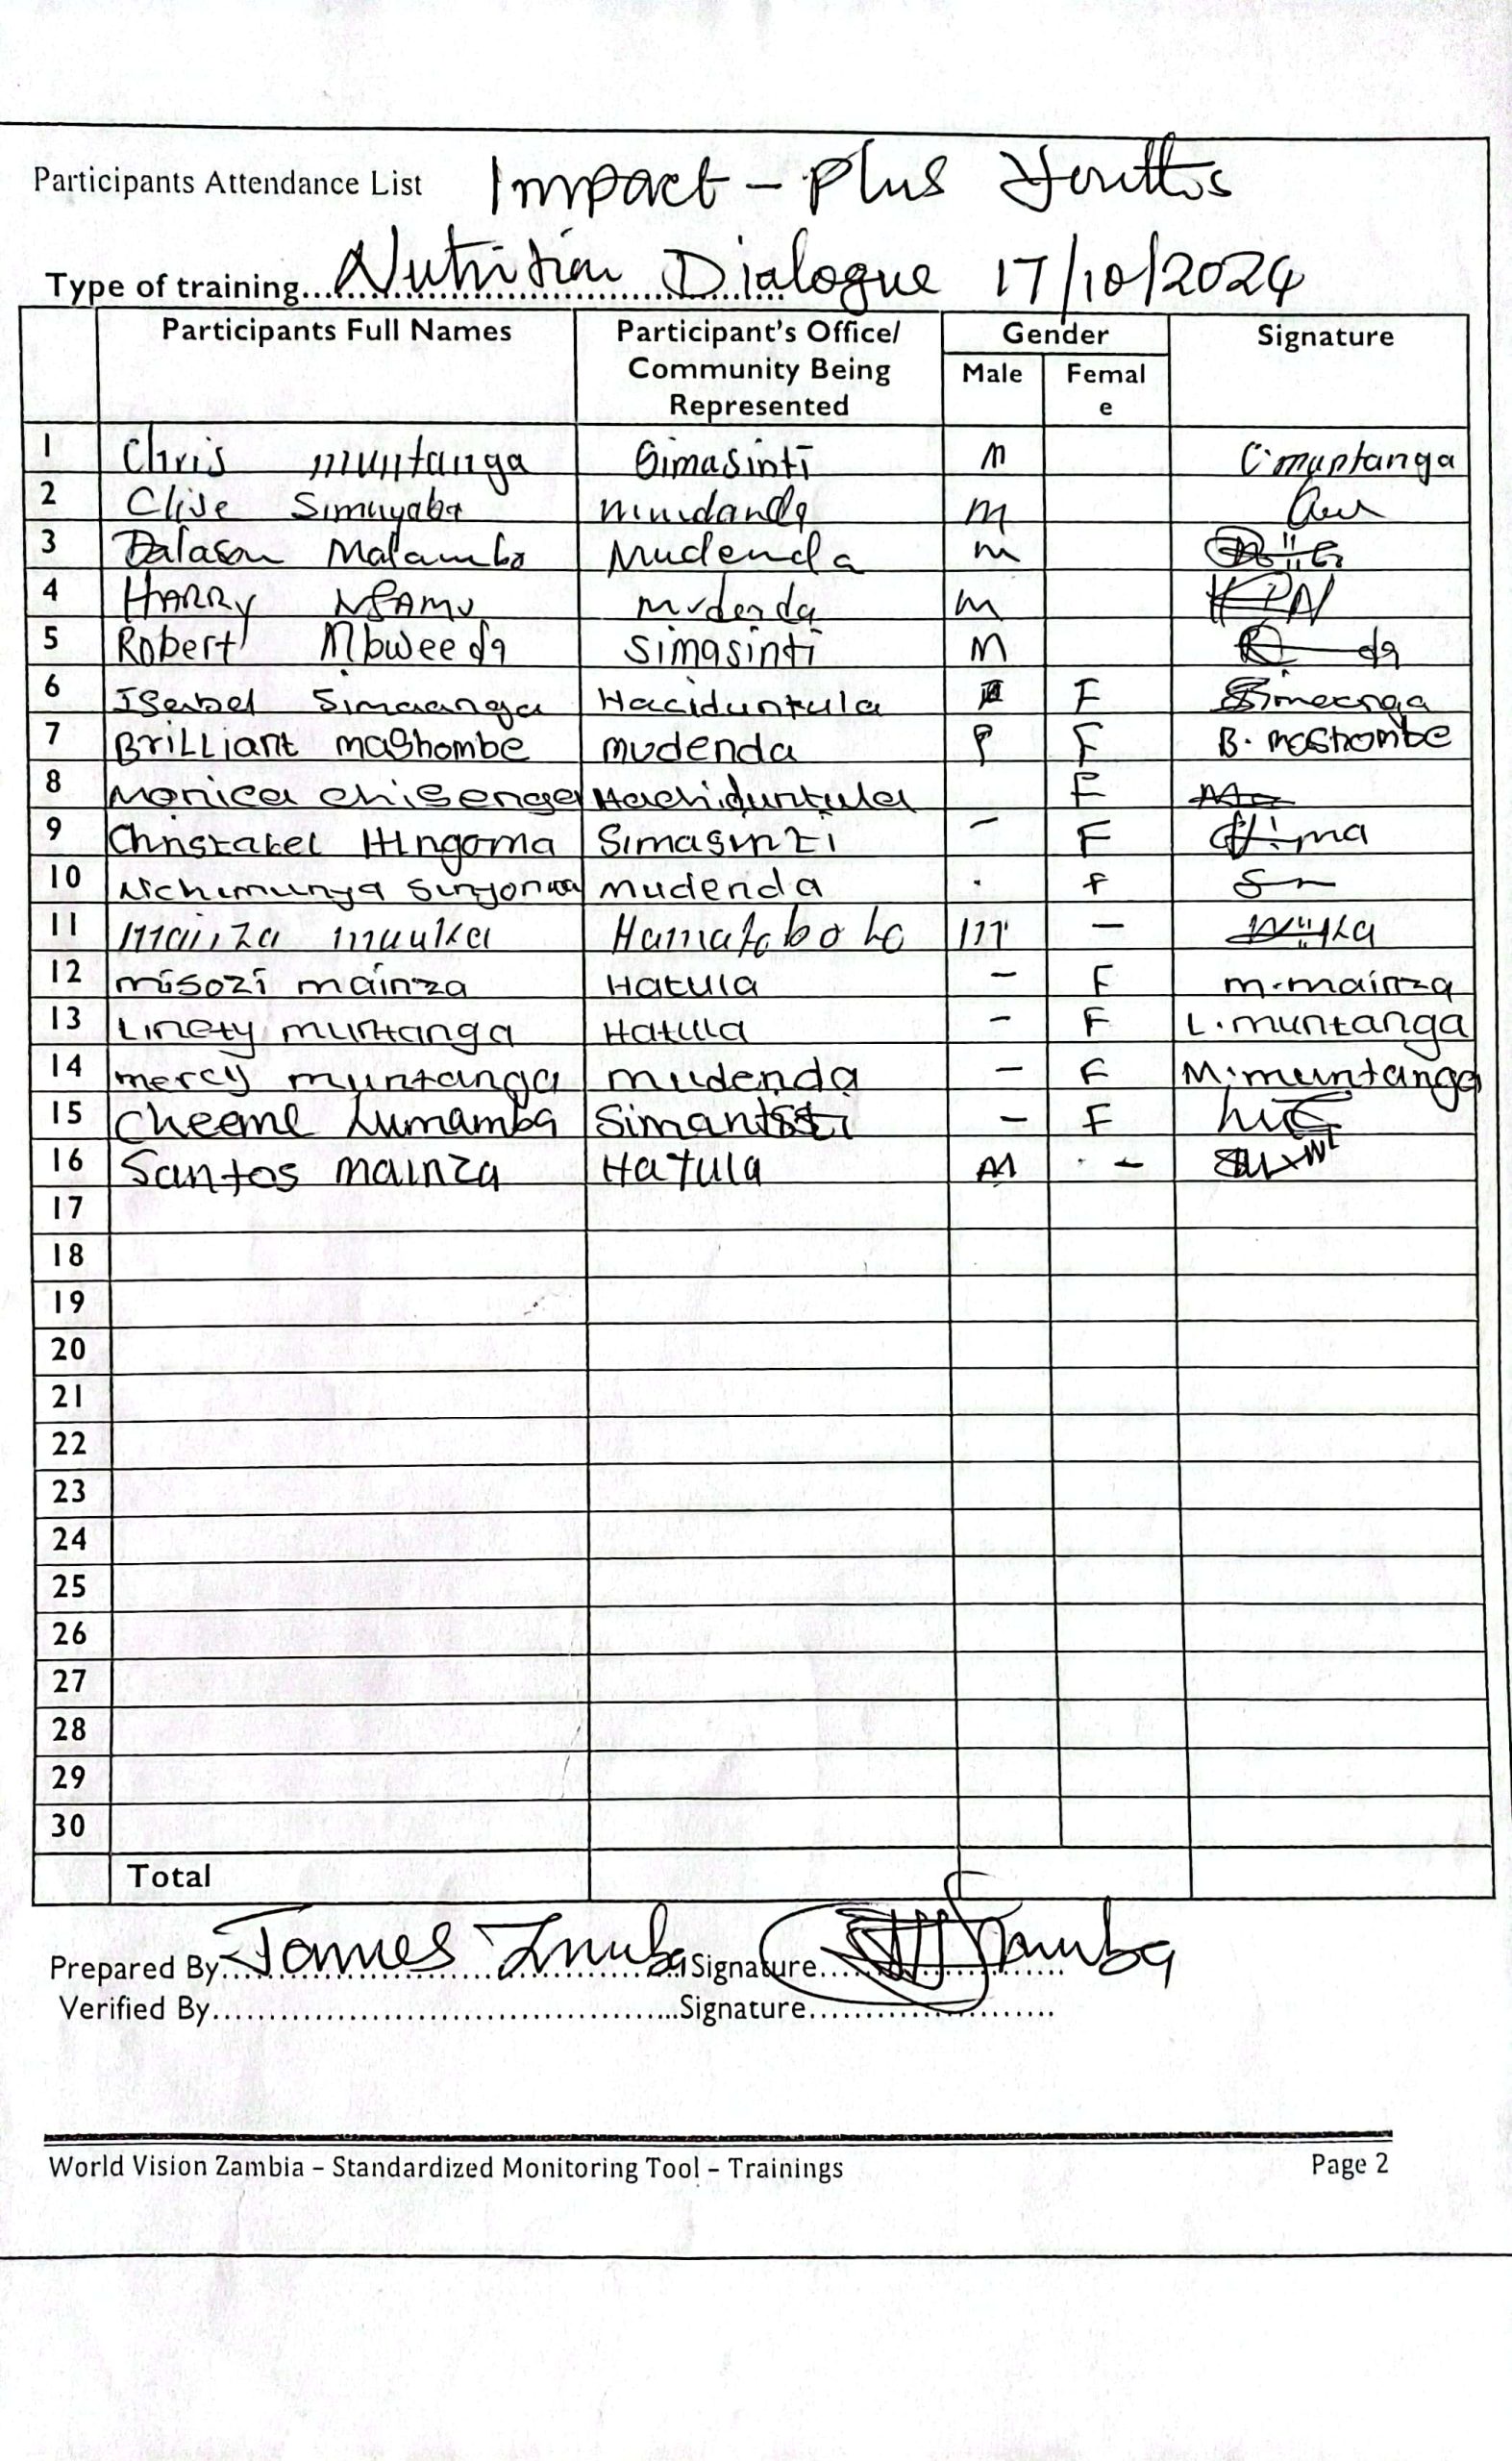 Participants Attendance List Impact - Plus Youths
Type of training... Nutrition Dialogue 17/10/2024
Participants Full Names Participant's Office/ Community Being Represented Gender Male Female Signature
1 Chris muntanga Simasinti m C.muntanga
2 Clive Simuyaba m
3 Malambo Mudenda m
4 HARRY mudenda m
5 Robert Mbweeda Simasinti M
6 Isabel Simaanga Haciduntula F
7 BRILLIANT maShombe mudenda F B. maShombe
8 Monica chisenga Hachiduntula F
9 Christabel Simasinti - F
10 mudenda F
11 mainza muuka m -
12 misozi mainza Hatula - F m.mainza
13 Linety muntanga Hatula - F L.muntanga
14 mercy muntanga mudenda - F M.muntanga
15 Cheeme Lumamba - F
16 Santos mainza Hatula M -
17
18
19
20
21
22
23
24
25
26
27
28
29
30
Total
Prepared By: James Signature
Verified By Signature
World Vision Zambia – Standardized Monitoring Tool – Trainings Page 2